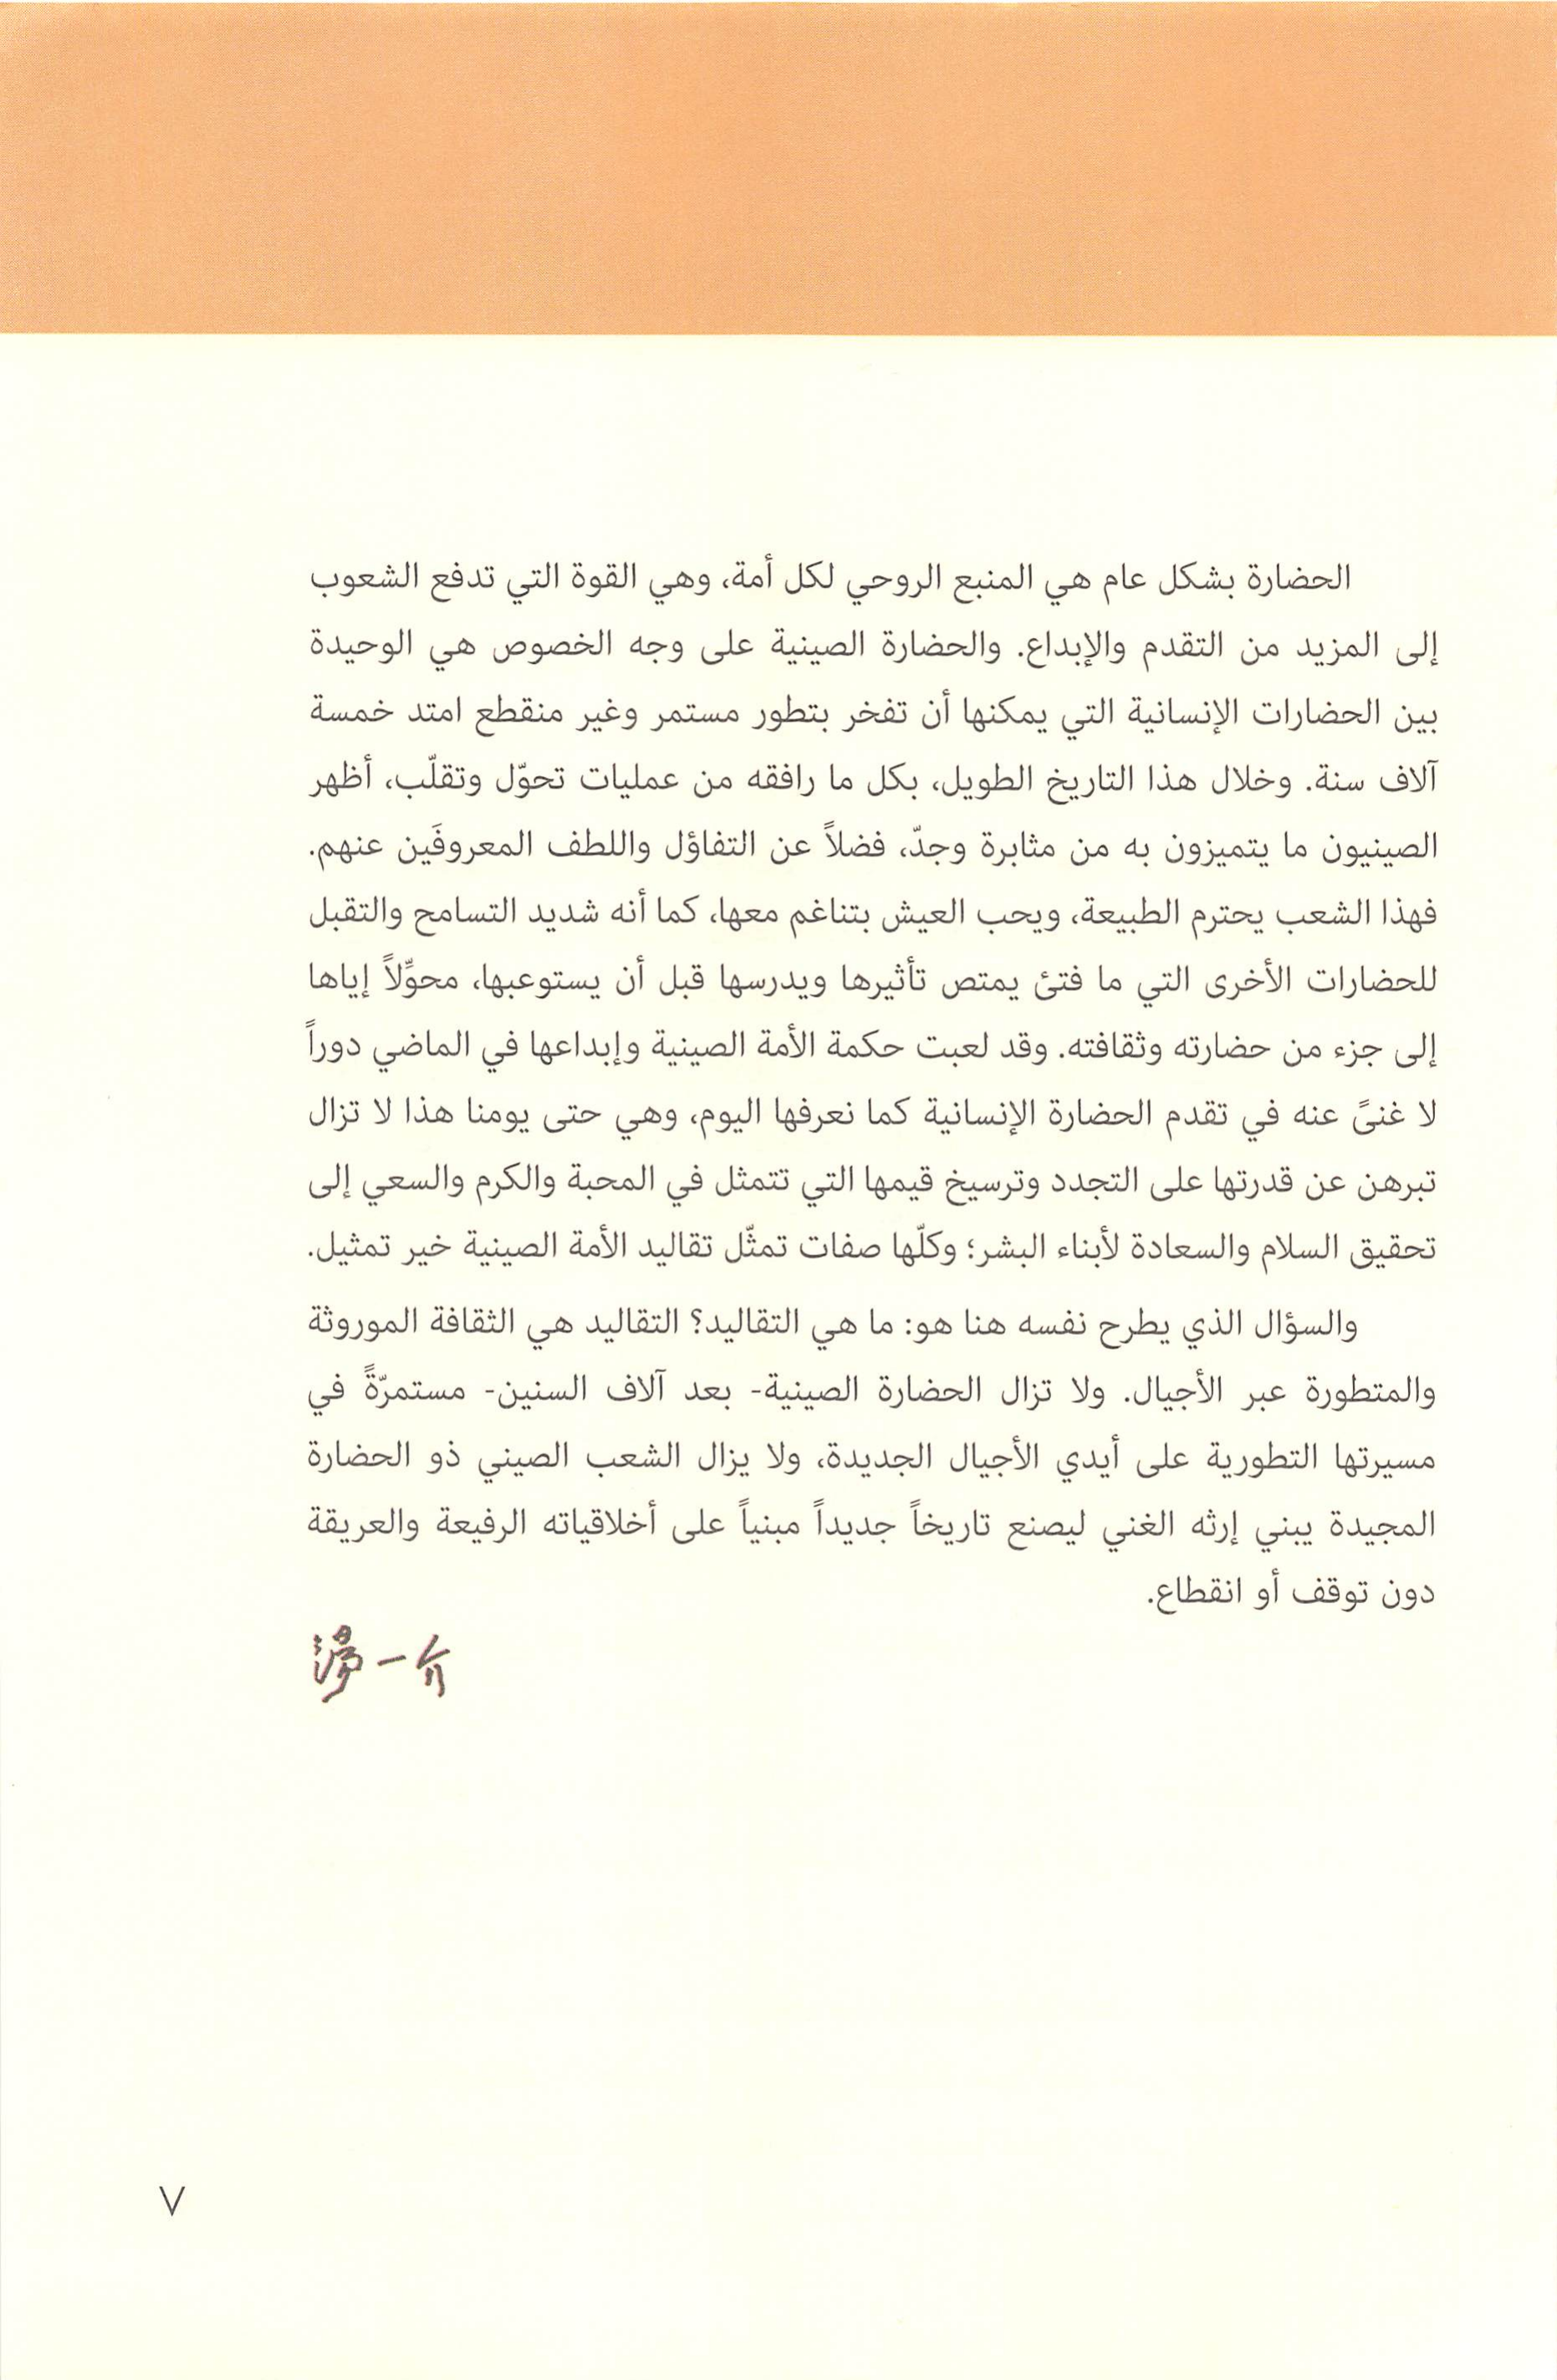 الحضارة بشكل عام هي المنبع الروحي لكل أمة، وهي القوة التي تدفع الشعوب
إلى المزيد من التقدم والإبداع. والحضارة الصينية على وجه الخصوص هي الوحيدة
بين الحضارات الإنسانية التي يمكنها أن تفخر بتطور مستمر وغير منقطع امتد خمسة
آلاف سنة. وخلال هذا التاريخ الطويل، بكل ما رافقه من عمليات تحوّل وتقلّب، أظهر
الصينيون ما يتميزون به من مثابرة وجدّ، فضلاً عن التفاؤل واللطف المعروفَين عنهم.
فهذا الشعب يحترم الطبيعة، ويحب العيش بتناغم معها، كما أنه شديد التسامح والتقبل
للحضارات الأخرى التي ما فتئ يمتص تأثيرها ويدرسها قبل أن يستوعبها، محوِّلاً إياها
إلى جزء من حضارته وثقافته. وقد لعبت حكمة الأمة الصينية وإبداعها في الماضي دوراً
لا غنىً عنه في تقدم الحضارة الإنسانية كما نعرفها اليوم، وهي حتى يومنا هذا لا تزال
تبرهن عن قدرتها على التجدد وترسيخ قيمها التي تتمثل في المحبة والكرم والسعي إلى
تحقيق السلام والسعادة لأبناء البشر؛ وكلّها صفات تمثّل تقاليد الأمة الصينية خير تمثيل.
والسؤال الذي يطرح نفسه هنا هو: ما هي التقاليد؟ التقاليد هي الثقافة الموروثة
والمتطورة عبر الأجيال. ولا تزال الحضارة الصينية- بعد آلاف السنين- مستمرّةً في
مسيرتها التطورية على أيدي الأجيال الجديدة، ولا يزال الشعب الصيني ذو الحضارة
المجيدة يبني إرثه الغني ليصنع تاريخاً جديداً مبنياً على أخلاقياته الرفيعة والعريقة
دون توقف أو انقطاع.
湯一介
٧